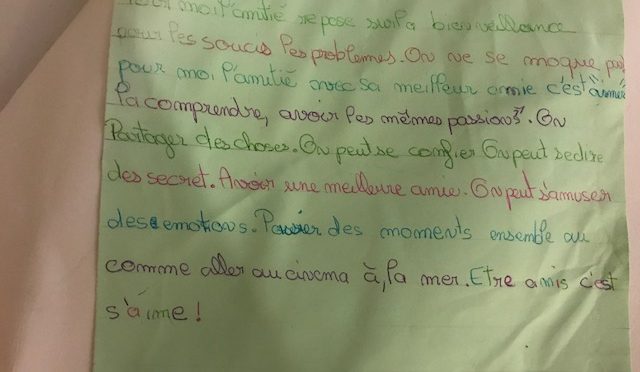 pour moi l'amitié repose sur la bienveillance
pour les soucis les problemes. On ne se moque pas
pour moi l'amitié avec sa meilleur amie c'est
la comprendre, avoir les mêmes passions. On
Partager des choses. On peut se confier On peut se dire
des secret. Avoir une meilleure amie. On peut s'amuser
des emotions. des moments ensemble au
comme aller au cinema à, la mer. Etre amis c'est
s'aime !